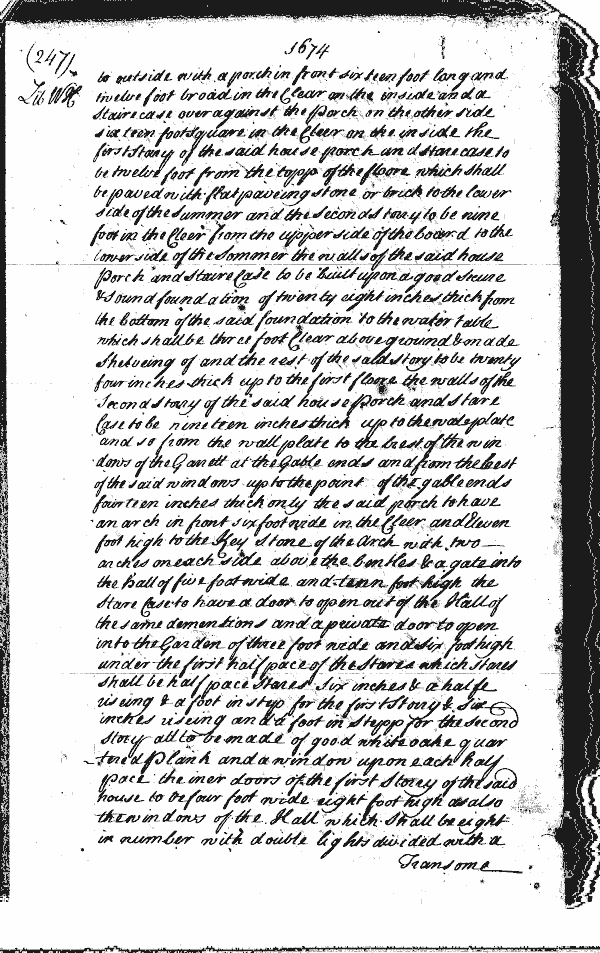 1674
(247)
Lib WH
to outside with a porch in front sixteen foot long and
twelve foot broad in the Clear on the inside and a
Staire case over against the Porch on the other side
sixteen foot square in the Cleer on the inside the
first Story of the said house porch and stare case to
be twelve foot from the topp of the floore which shall
be paved with flat paveing stone or brick to the lower
side of the Summer and the second story to be nine
foot in the Cleer from the upper side of the board to the
lower side of the Sommer the walls of the said house
Porch and Staire Case to be built upon a good secure
& sound foundation of twenty eight inches thick from
the bottom of the said foundation to the water table
which shall be three foot Clear above ground & made
Shelveing of and the rest of the said story to be twenty
four inches thick up to the first floore the walls of the
Second story of the said house Porch and Stare
Case to be nineteen inches thick up to the wale plate
and so from the wall plate to the brest of the win
dows of the Garrett at the Gable ends and from the brest
of the said windows up to the point of the gable ends
fourteen inches thick only the said porch to have
an arch in front six foot wide in the Cleer and Eleven
foot high to the Key stone of the Arch with two
arches on each side above the bentles & a gate into
the hall of five foot wide and tenn foot high the
Stare Case to have a door to open out of the Hall of
the same dementions and a private door to open
into the Garden of three foot wide and six foot high
under the first half pace of the Stares which stares
shall be half pace Stares six inches & a halfe
riseing & a foot in step for the first Story & six
inches riseing and a foot in stepp for the second
story all to be made of good white oake quar
tered Plank and a window upon each half
pace the iner doors of the first Storey of the said
house to be four foot wide eight foot high as also
the windows of the Hall which shall be eight
in number with double lights divided with a
Transome